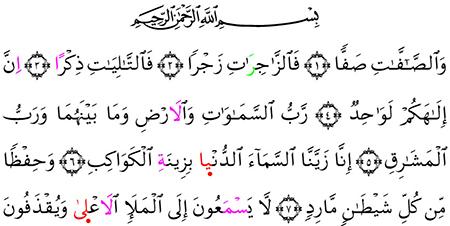 بِسْمِ اللَّهِ الرَّحْمَٰنِ الرَّحِيمِ
وَالصَّافَّاتِ صَفًّا ﴿١﴾ فَالزَّاجِرَاتِ زَجْرًا ﴿٢﴾ فَالتَّالِيَاتِ ذِكْرًا ﴿٣﴾ إِنَّ
إِلَٰهَكُمْ لَوَاحِدٌ ﴿٤﴾ رَبُّ السَّمَاوَاتِ وَالَارْضِ وَمَا بَيْنَهُمَا وَرَبُّ
الْمَشَارِقِ ﴿٥﴾ إِنَّا زَيَّنَّا السَّمَآءَ الدُّنْيا بِزِينَةِ الْكَوَاكِبِ ﴿٦﴾ وَحِفْظًا
مِّن كُلِّ شَيْطَٰنٍ مَّارِدٍ ﴿٧﴾ لَّا يَسْمَعُونَ إِلَى الْمَلَإِ الَاعْلىٰ وَيُقْذَفُونَ